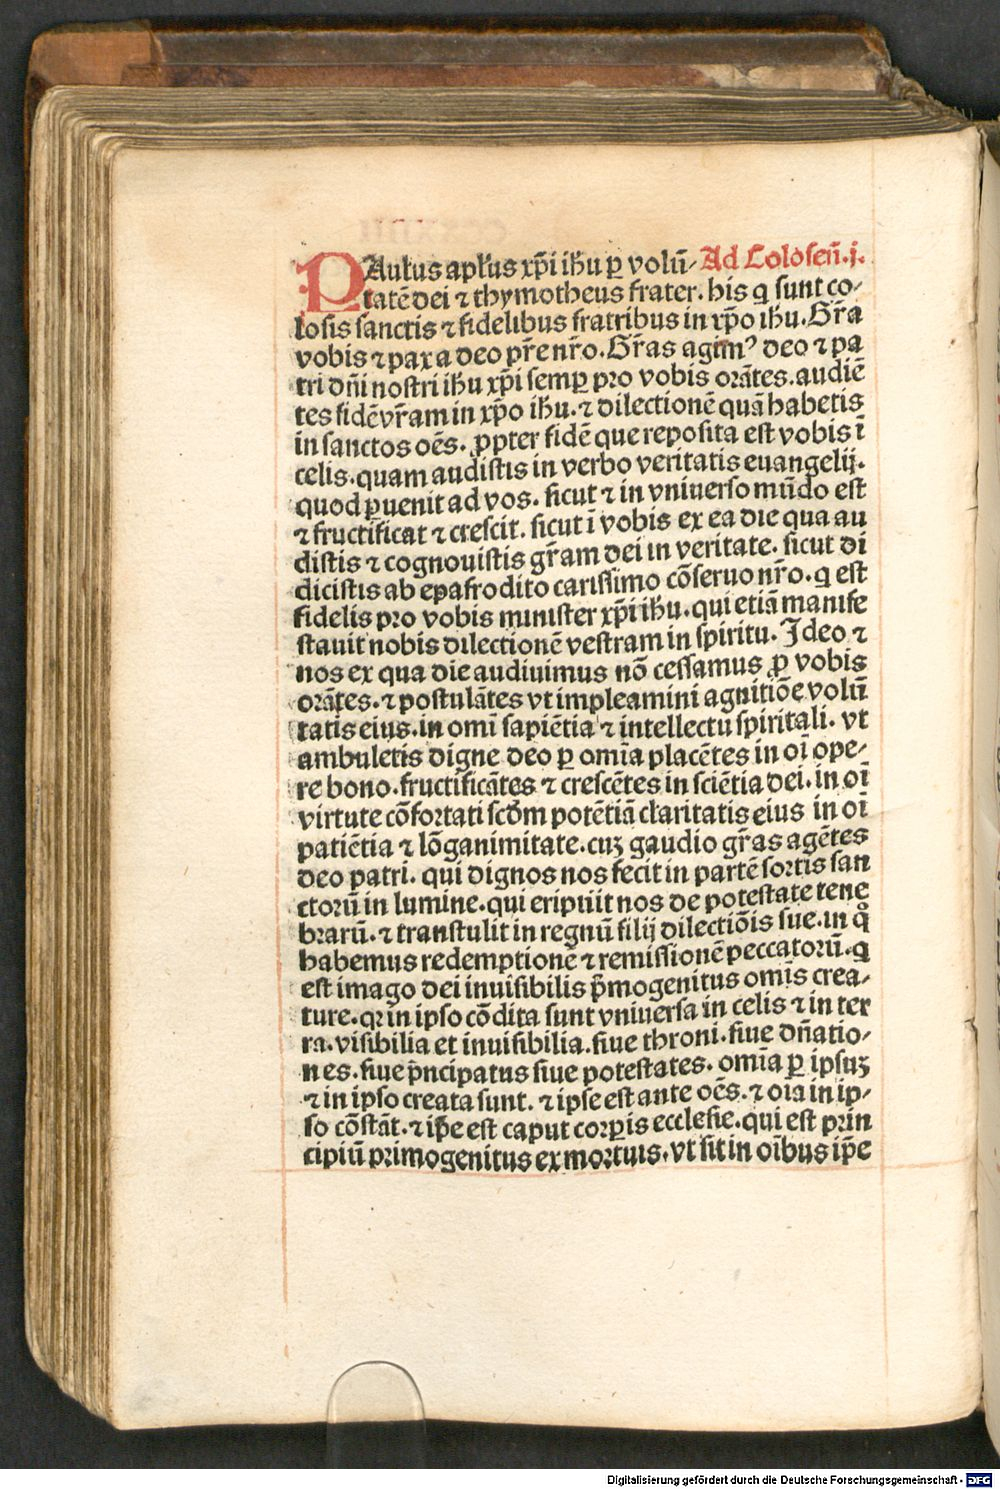 PAulus apl'us xp̄i ih̄u ꝑ volū⸗ Ad Colosen̄.i.
tatē dei ⁊ thymotheus frater. his q sunt co⸗
losis sanctis ⁊ fidelibus fratribus in xp̄o ih̄u. Gr̄a
vobis ⁊ pax a deo pr̄e nr̄o. Gr̄as agimꝰ deo ⁊ pa
tri dn̄i nostri ih̄u xp̄i semꝑ pro vobis orātes. audiē
tes fidē vr̄am in xp̄o ih̄u. ⁊ dilectionē quā habetis
in sanctos oēs. ꝓpter fidē que reposita est vobis ī
celis. quam audistis in verbo veritatis euangelij.
quod ꝑuenit ad vos. sicut ⁊ in vniuerso mūdo est
⁊ fructificat ⁊ crescit. sicut ī vobis ex ea die qua au
distis ⁊ cognouistis gr̄am dei in veritate. sicut di
dicistis ab epafrodito carissimo cōseruo nr̄o. q est
fidelis pro vobis minister xp̄i ih̄u. qui etiā manife
stauit nobis dilectionē vestram in spiritu. Ideo ⁊
nos ex qua die audiuimus nō cessamus ꝓ vobis
orātes. ⁊ postulātes vt impleamini agnitiōe volū
tatis eius. in omī sapiētia ⁊ intellectu spiritali. vt
ambuletis digne deo ꝑ omīa placētes in oī ope⸗
re bono. fructificātes ⁊ crescētes in sciētia dei. in oī
virtute cōfortati scd̄m potētiā claritatis eius in oī
patiētia ⁊ lōganimitate. cuꝫ gaudio gr̄as agētes
deo patri. qui dignos nos fecit in partē sortis san
ctorū in lumine. qui eripuit nos de potestate tene
brarū. ⁊ transtulit in regnū filij dilectiōis sue. in qͦ
habemus redemptionē ⁊ remissionē peccatorū. q
est imago dei inuisibilis p̄mogenitus omīs crea⸗
ture. qꝛ in ipso cōdita sunt vniuersa in celis ⁊ in ter
ra. visibilia et inuisibilia. siue throni. siue dn̄atio⸗
nes. siue p̄ncipatus siue potestates. omīa ꝑ ipsuꝫ
⁊ in ipso creata sunt. ⁊ ipse est ante oēs. ⁊ oīa in ip⸗
so cōstāt. ⁊ ip̄e est caput corꝑis ecclesie. qui est prin
cipiū primogenitus ex mortuis. vt sit in oībus ip̄e
Digitalisierung gefördert durch die Deutsche Forschungsgemeinschaft - DFG